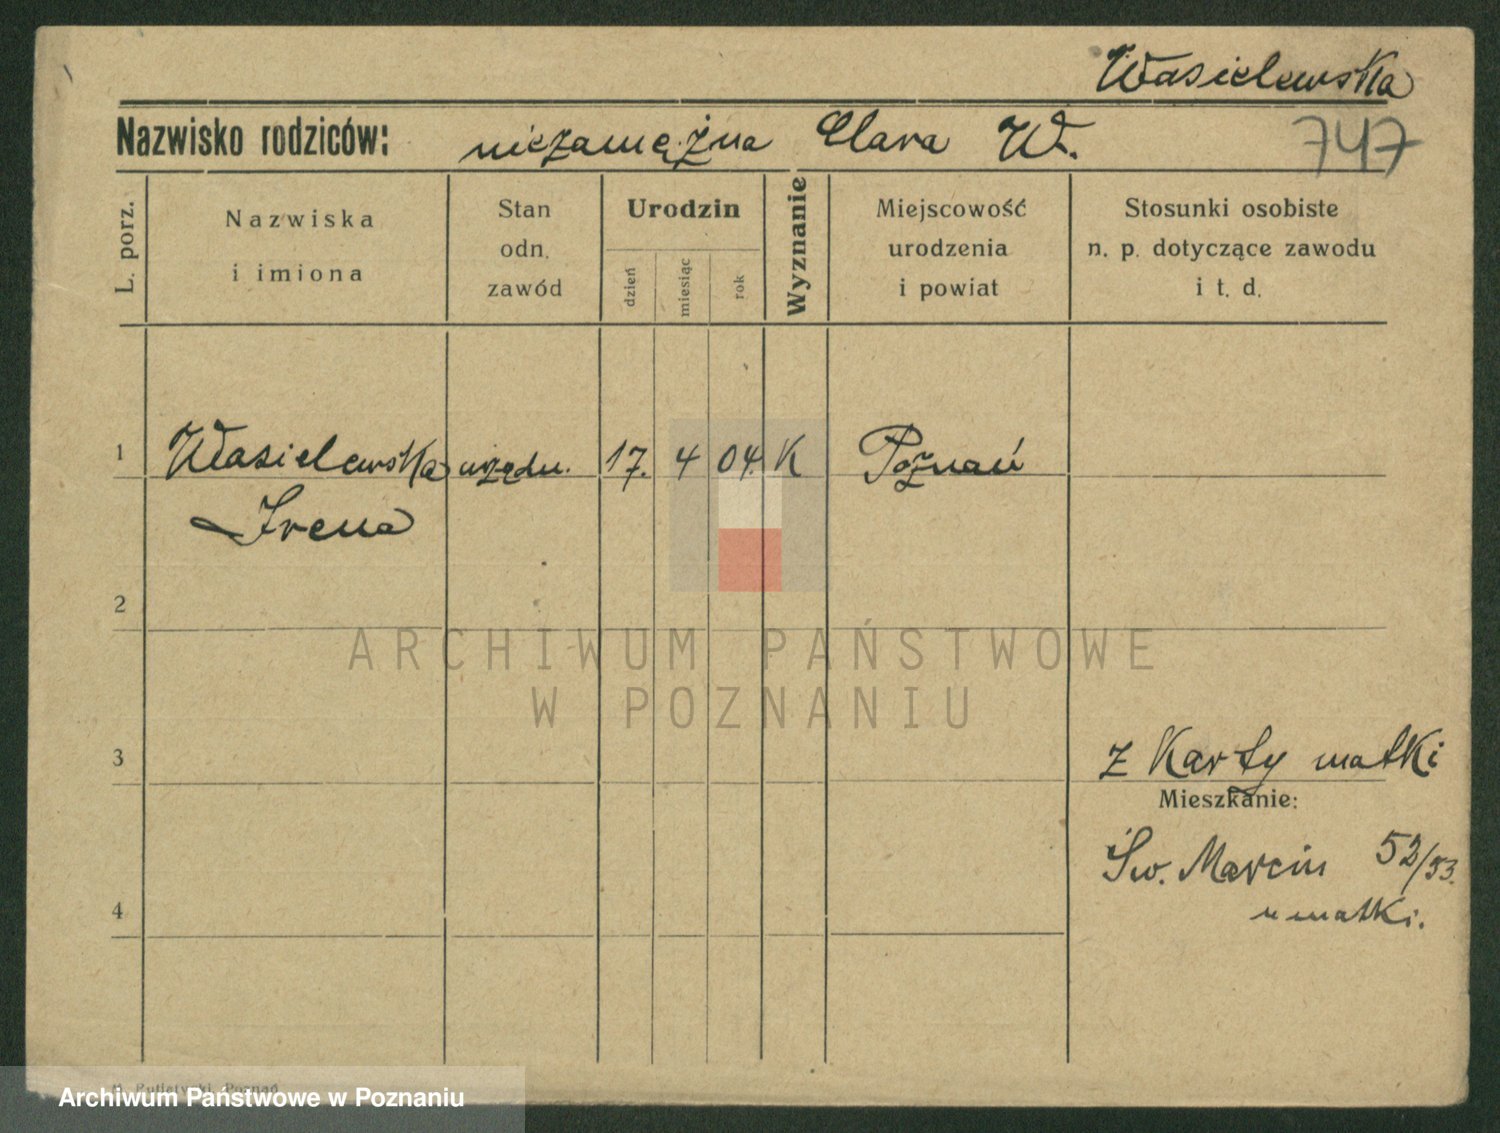 Wasielewska
Nazwisko rodziców: niezamężna Clara W. 747
L. porz.
Nazwiska
i imiona
Stan
odn.
zawód
Urodzin
dzień
miesiąc
rok
Wyznanie
Miejscowość
urodzenia
i powiat
Stosunki osobiste
n. p. dotyczące zawodu
i t. d.
1 Wasielewska urzędn. 17. 4 04. K Poznań
Irena
2
ARCHIWUM PAŃSTWOWE
W POZNANIU
3
z Karty matki
Mieszkanie:
Św. Marcin 52/53.
u matki.
4
Putiatycki, Poznań
Archiwum Państwowe w Poznaniu